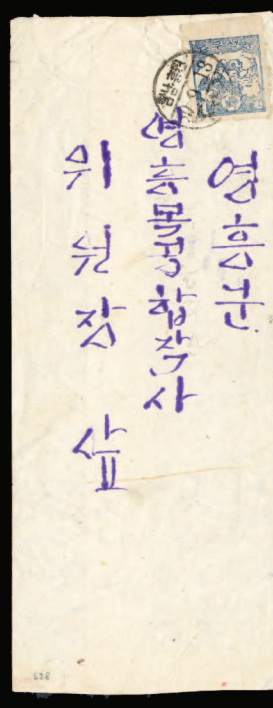 영흥군
영흥목공합작사
위원장 앞